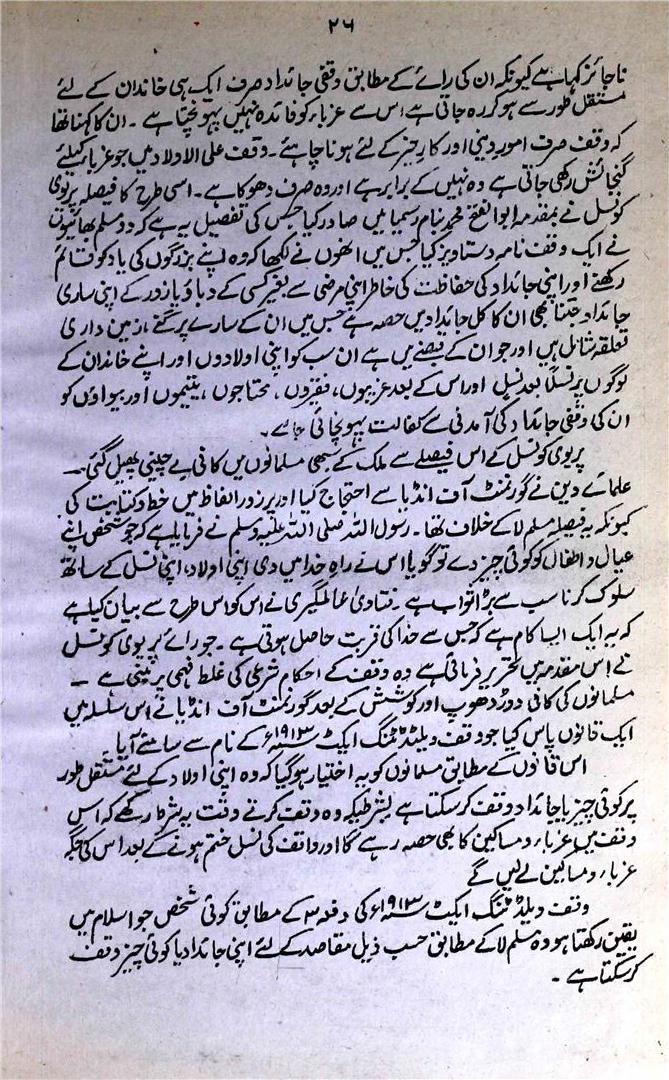 ۲۶
ناجائز کہا ہے کیونکہ ان کی رائے کے مطابق وقفی جائداد صرف ایک ہی خاندان کے لئے
مستقل طور سے ہو کر رہ جاتی ہے اس سے غرباء کو فائدہ نہیں پہونچتا ہے ۔ ان کا کہنا تھا
کہ وقف صرف امور دینی اور کار خیر کے لئے ہونا چاہئے ۔ وقف علی الاولاد میں جو غرباء کیلئے
گنجائش رکھی جاتی ہے وہ نہیں کے برابر ہے اور وہ صرف دھوکا ہے ۔ اسی طرح کا فیصلہ پریوی
کونسل نے بمقدمہ ابوالفتح محمد بنام رسمیا میں صادر کیا جس کی تفصیل یہ ہے کہ دو مسلم بھائیوں
نے ایک وقف نامہ دستاویز کیا جس میں انھوں نے لکھا کہ وہ اپنے بزرگوں کی یاد کو قائم
رکھنے اور اپنی جائداد کی حفاظت کی خاطر اپنی مرضی سے بغیر کسی کے دباؤ یا زور کے اپنی ساری
جائداد جتنا بھی ان کا کل جائداد میں حصہ ہے جس میں ان کے سارے پرگنے، زمین داری
تعلقہ شامل ہیں اور جو ان کے قبضے میں ہے ان سب کو اپنی اولادوں اور اپنے خاندان کے
لوگوں پر نسلاً بعد نسل اور اس کے بعد غریبوں، فقیروں، محتاجوں، یتیموں اور بیواؤں کو
ان کی وقفی جائداد کی آمدنی سے کفالت پہونچائی جائے۔
پریوی کونسل کے اس فیصلے سے ملک کے سبھی مسلمانوں میں کافی بے چینی پھیل گئی ۔
علمائے دین نے گورنمنٹ آف انڈیا سے احتجاج کیا اور پر زور الفاظ میں خط و کتابت کی
کیونکہ یہ فیصلہ مسلم لا کے خلاف تھا۔ رسول اللہ صلی اللہ علیہ وسلم نے فرمایا ہے کہ جو شخص اپنے
عیال و اطفال کو کوئی چیز دے تو گویا اس نے راہ خدا میں دی اپنی اولاد، اپنی نسل کے ساتھ
سلوک کرنا سب سے بڑا ثواب ہے ۔ فتاویٰ عالمگیری نے اس کو اس طرح سے بیان کیا ہے
کہ یہ ایک ایسا کام ہے کہ جس سے خدا کی قربت حاصل ہوتی ہے ۔ جو رائے پریوی کونسل
نے اس مقدمہ میں تحریر فرمائی ہے وہ وقف کے احکام شرعی کی غلط فہمی پر مبنی ہے ۔
مسلمانوں کی کافی دوڑ دھوپ اور کوشش کے بعد گورنمنٹ آف انڈیا نے اس سلسلہ میں
ایک قانون پاس کیا جو وقف ویلیڈیٹنگ ایکٹ ۱۹۱۳ء کے نام سے سامنے آیا۔
اس قانون کے مطابق مسلمانوں کو یہ اختیار ہو گیا کہ وہ اپنی اولاد کے لئے مستقل طور
پر کوئی چیز یا جائداد وقف کر سکتا ہے بشرطیکہ وہ وقف کرتے وقت یہ شرط رکھے کہ اس
وقف میں غرباء و مساکین کا بھی حصہ رہے گا اور واقف کی نسل ختم ہونے کے بعد اس کی جگہ
غرباء و مساکین لے لیں گے
وقف ویلیڈیٹنگ ایکٹ ۱۹۱۳ء کی دفعہ ۳ کے مطابق کوئی شخص جو اسلام میں
یقین رکھتا ہو وہ مسلم لا کے مطابق حسب ذیل مقاصد کے لئے اپنی جائداد یا کوئی چیز وقف
کر سکتا ہے ۔